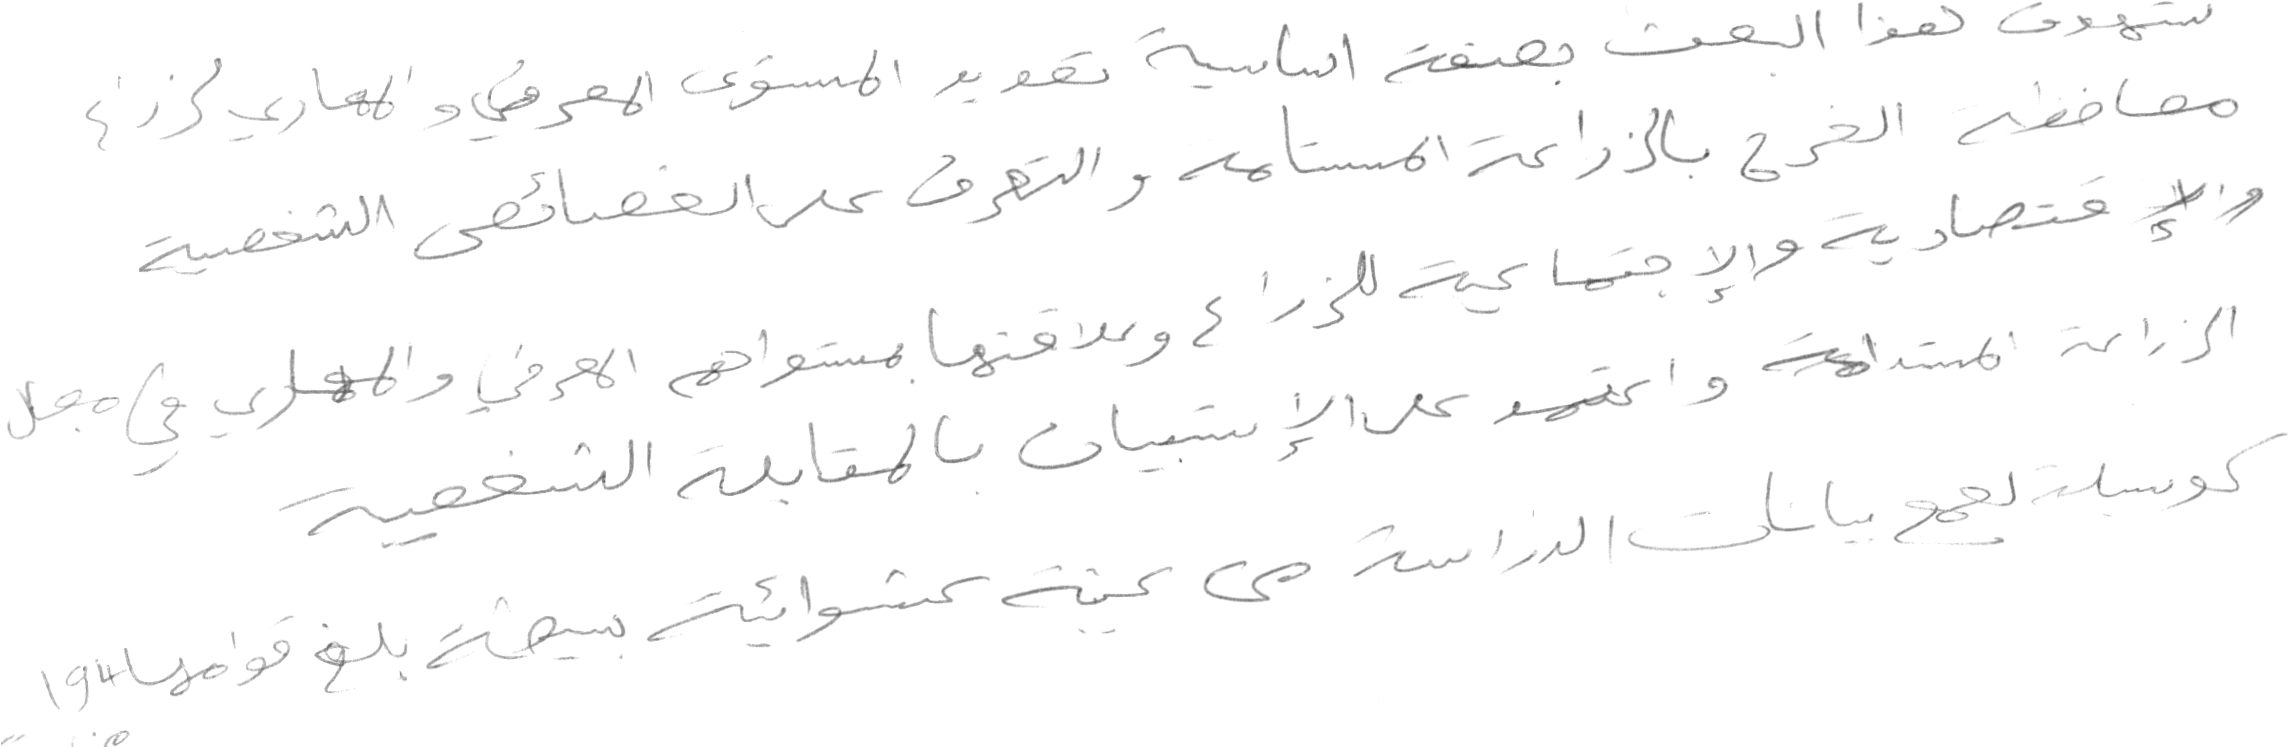 ستهدف هذا البحث بصفة اساسية تحديد المستوى المعرفي والمهاري لزراع
محافظة الخرج بالزراعة المستدامة والتعرف على الخصائص الشخصية
والإقتصادية والإجتماعية للزراع وعلاقتها بمستواهم المعرفي والمهاري في مجال
الزراعة المستدامة واعتمد على الإستبيان بالمقابلة الشخصية
كوسيلة لجمع بيانات الدراسة من عينة عشوائية بسيطة بلغ قوامها 194